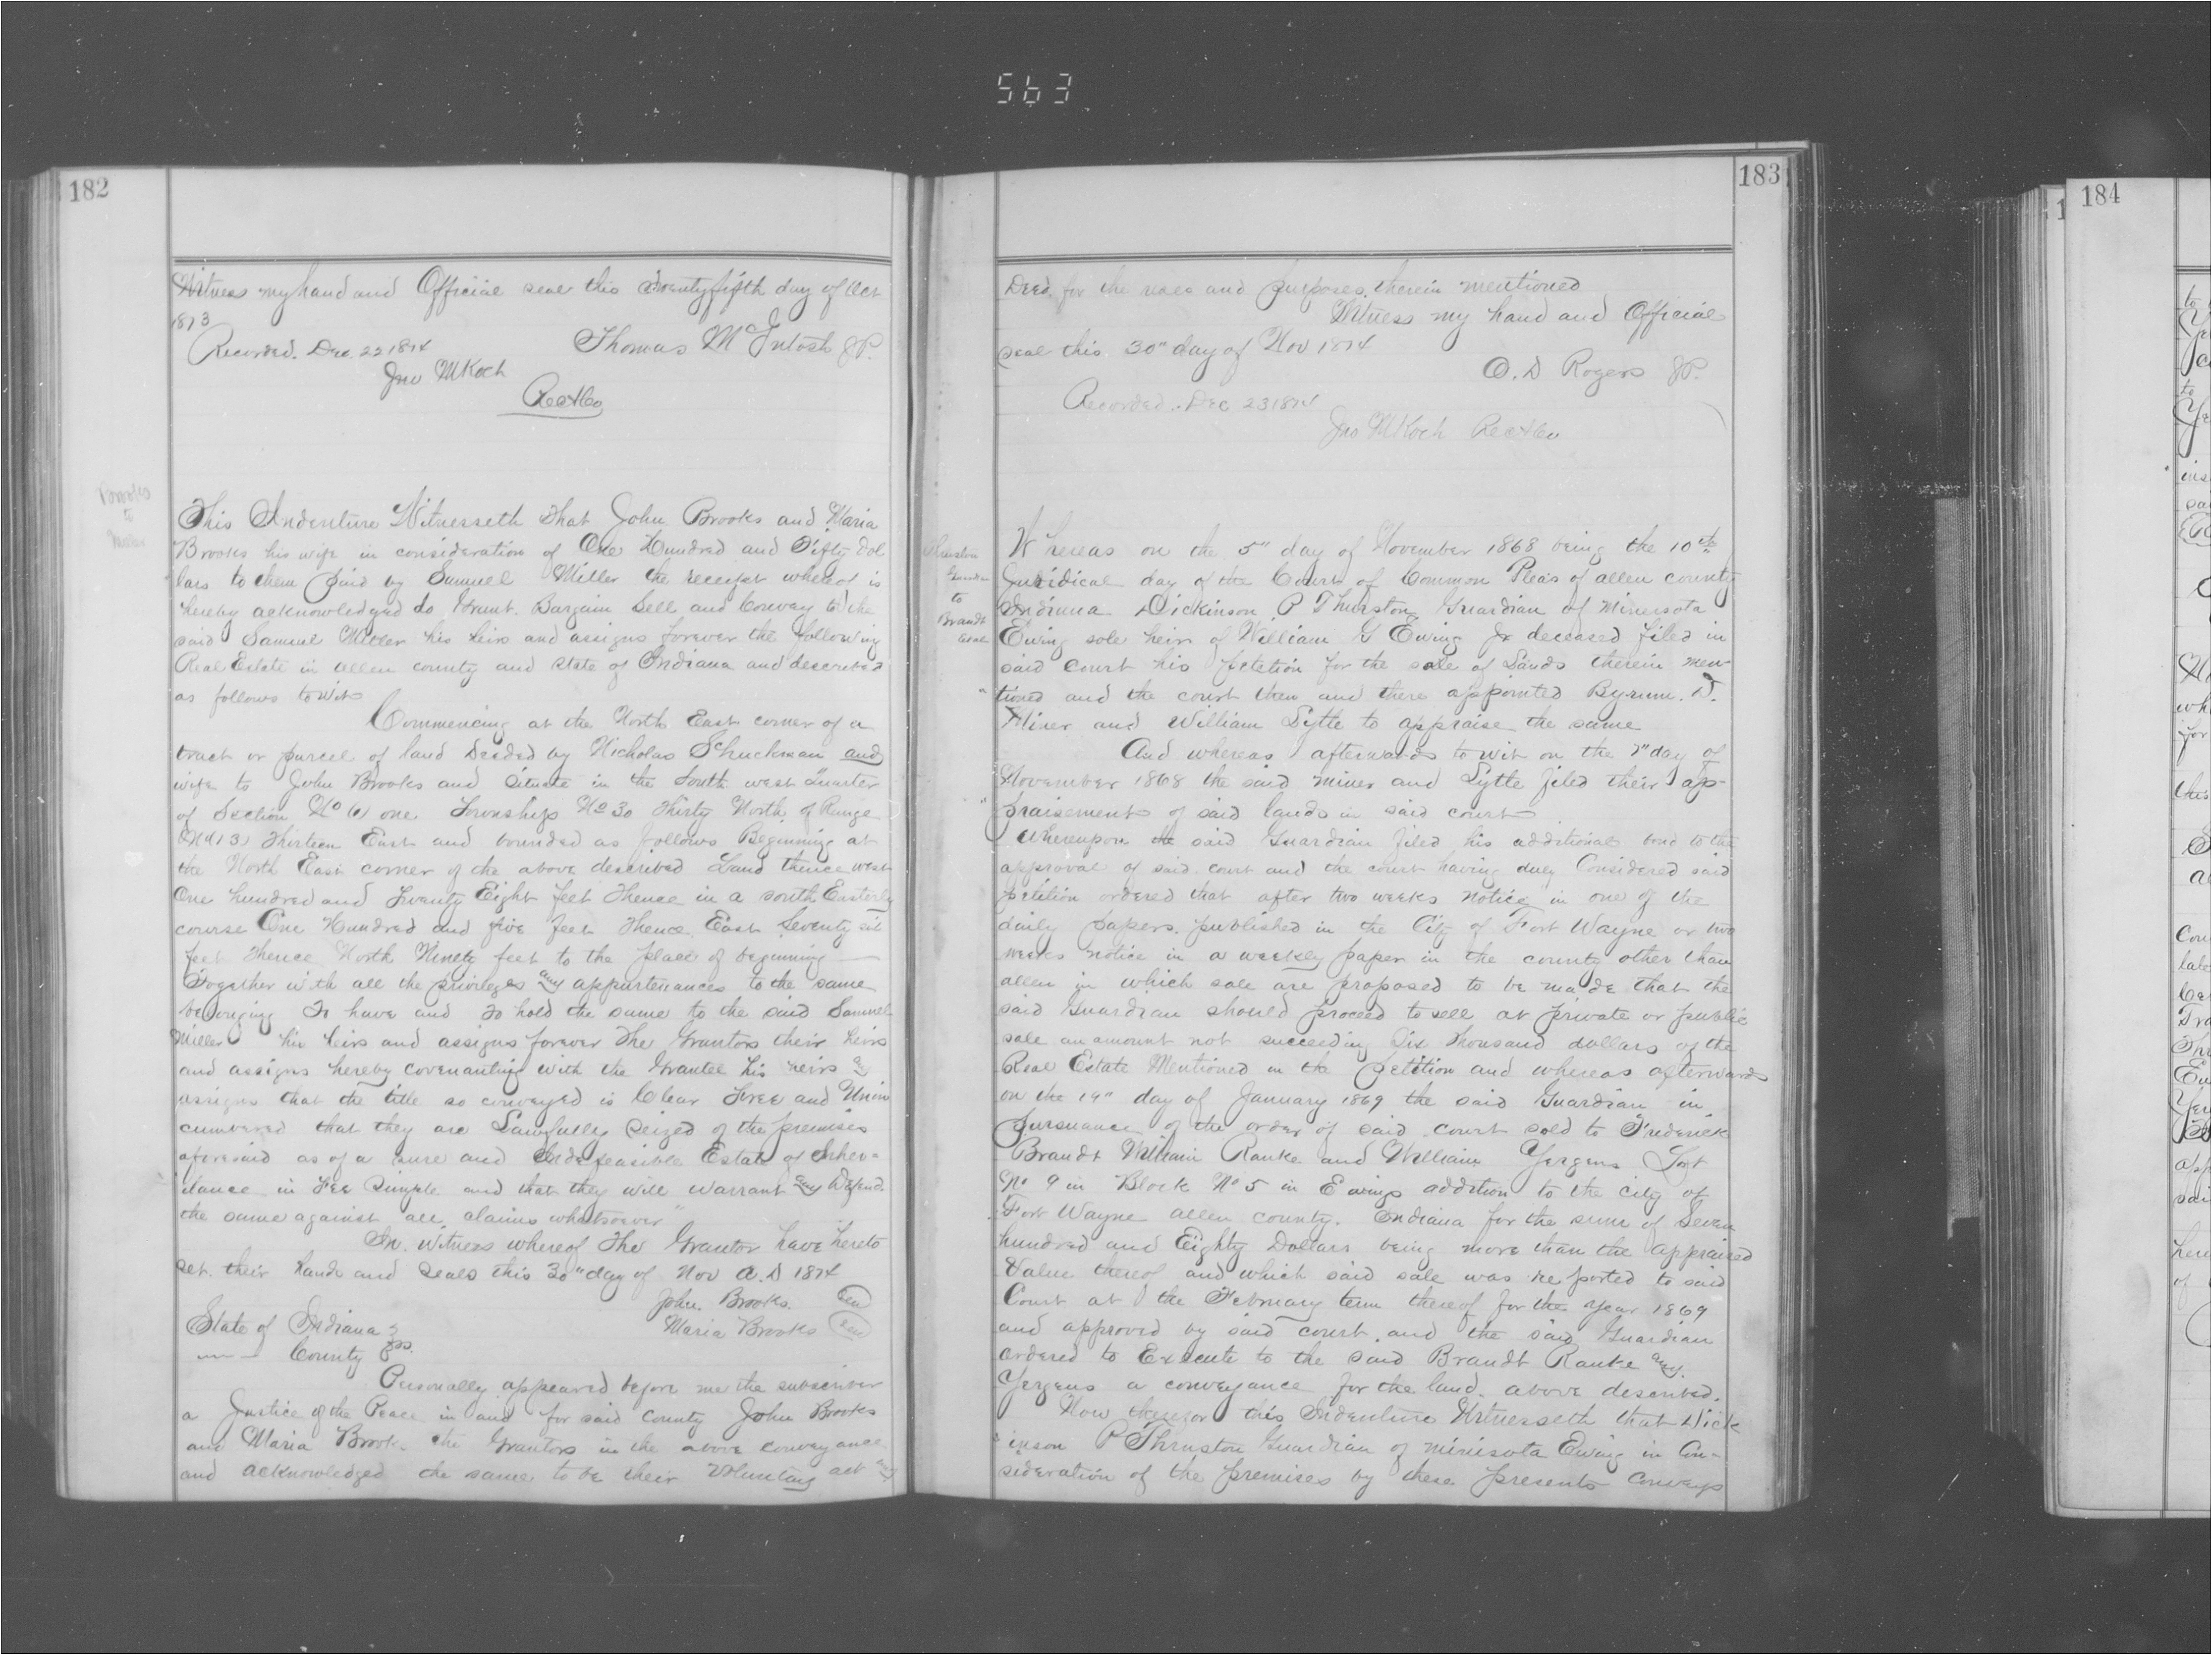 563
182
Witness my hand and Official seal this twenty fifth day of Oct
1873
Thomas McIntosh JP.
Recorded. Dec. 22 1874
Jno M Koch
Rec A Co
Brooks
to
Miller
This Indenture Witnesseth That John Brooks and Maria
Brooks his wife in consideration of One Hundred and Fifty Dol
lars to them paid by Samuel Miller the receipt whereof is
hereby acknowledged do Grant Bargain Sell and Convey to the
said Samuel Miller his heirs and assigns forever the following
Real Estate in allen county and state of Indiana and described
as follows to wit
Commencing at the North East corner of a
tract or parcel of land Deeded by Nicholas Schuckman and
wife to John Brooks and Situate in the South west Quarter
of Section No (1) one Township No 30 Thirty North of Range
(No 13) Thirteen East and bounded as follows Beginning at
the North East corner of the above described Land thence west
One hundred and Twenty Eight feet Thence in a south Easterly
course One Hundred and five feet Thence East Seventy six
feet Thence North Ninety feet to the place of beginning
Together with all the privileges and appurtenances to the same
belonging To have and To hold the same to the said Samuel
Miller his heirs and assigns forever The Grantors their heirs
and assigns hereby covenanting with the Grantee his heirs and
assigns that the title so conveyed is Clear Free and Unin
cumbered that they are Lawfully Seized of the premises
aforesaid as of a sure and Indefeasible Estate of Inher=
itance in Fee Simple and that they will warrant and Defend
the same against all claims whatsoever
In witness whereof The Grantor have hereto
set their hands and seals this 30" day of Nov A.D 1874
John. Brooks. Seal
Maria Brooks Seal
State of Indiana
County ss.
Personally appeared before me the subscriber
a Justice of the Peace in and for said county John Brooks
and Maria Brook. the Grantors in the above conveyance
and acknowledged the same to be their Voluntary act and
183
Deed for the uses and purposes therein mentioned
Witness my hand and Official
seal this 30" day of Nov 1874
O. D Rogers JP.
Recorded. Dec 23 1874
Jno M Koch Rec A Co
Thurston
Guardn
to
Brandt
et al
Whereas on the 5" day of November 1868 being the 10th
Juridical day of the Court of Common Pleas of allen county
Indiana Dickinson P Thurston Guardian of Minersota
Ewing sole heir of William G Ewing Jr deceased filed in
said court his petition for the sale of Lands therein men-
tioned and the court then and there appointed Byrum. D.
Miner and William Lytle to appraise the same
And whereas afterwards to wit on the 7" day of
November 1868 the said miner and Lytle filed their ap-
praisement of said lands in said court
Whereupon the said Guardian filed his additional bond to the
approval of said court and the court having duly Considered said
petition ordered that after two weeks notice in one of the
daily papers published in the City of Fort Wayne or two
weeks notice in a weekly paper in the county other than
allen in which sale are proposed to be made that the
said Guardian should proceed to sell at private or public
sale an amount not succeeding Six Thousand dollars of the
Real Estate Mentioned in the petition and whereas afterwards
on the 19" day of January 1869 the said Guardian in
pursuance of the order of said court sold to Frederick
Brandt William Ranke and William Yergens Lot
No 9 in Block No 5 in Ewings addition to the city of
Fort Wayne allen county. Indiana for the sum of Seven
hundred and Eighty Dollars being more than the appraised
Value thereof and which said sale was reported to said
Court at the February term thereof for the year 1869
and approved by said court and the said Guardian
ordered to Execute to the said Brandt Ranke and
Yergens a conveyance for the land above described.
Now therefor this Indenture Witnesseth that Dick
inson P Thruston Guardian of Minisota Ewing in Con-
sideration of the premises by these presents Conveys
184